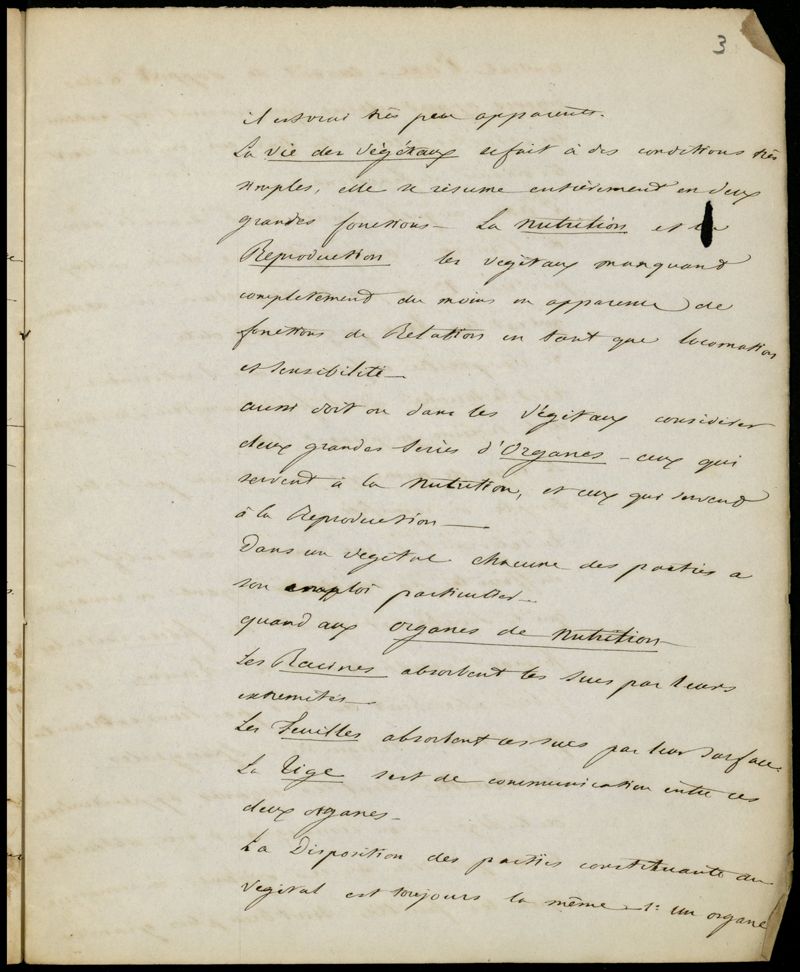 3
il est vrai très peu apparents.
La vie des végétaux se fait à des conditions très
simples, elle se résume entièrement en deux
grandes fonctions — La nutrition et la
Reproduction les vegetaux manquand
completement du moins en apparence de
fonctions de Relation en tant que locomotion
et sensibilité —
aussi doit on dans les végetaux considérer
deux grandes series d'Organes — ceux qui
servent à la nutrition, et ceux qui servent
à la Reproduction —
Dans un vegetal chacune des parties a
son emploi particulier —
quand aux organes de nutrition —
Les Racines absorbent les sucs par leurs
extremités —
Les feuilles absorbent ces sucs par leur surface.
La Tige sert de communication entre ces
deux organes —
La Disposition des parties constituante du
vegetal est toujours la même — 1º un organe